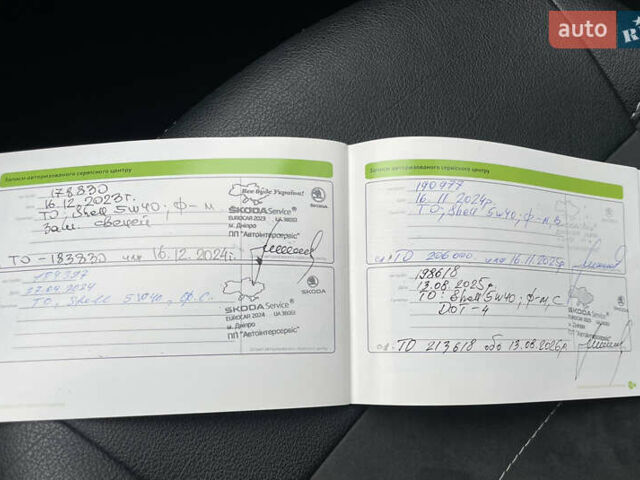 auto
R
Записи авторизованого сервісного центру
178830
16.12.2023г.
ТО, Shell 5w40, ф-м
Зам. свечей
Все буде Україна!
ŠKODA Service®
EUROCAR 2023 UA38013
м. Дніпро
ПП "Автоінтерсервіс"
ŠKODA
ТО - 183830 или 16.12.2024г.
22.04.2024
ТО, Shell 5w40, ф.С.
ŠKODA Service®
EUROCAR 2024 UA38013
м. Дніпро
ПП "Автоінтерсервіс"
ŠKODA
Записи авторизованого сервісного центру
190977
16.11.2024г.
ТО, Shell 5w40, ф-м, в
ТО 206000 или 16.11.2025г.
198618
13.08.2025р.
ТО: Shell 5w40; ф-м, С
DOT-4
ТО 213618 або 13.08.2026р